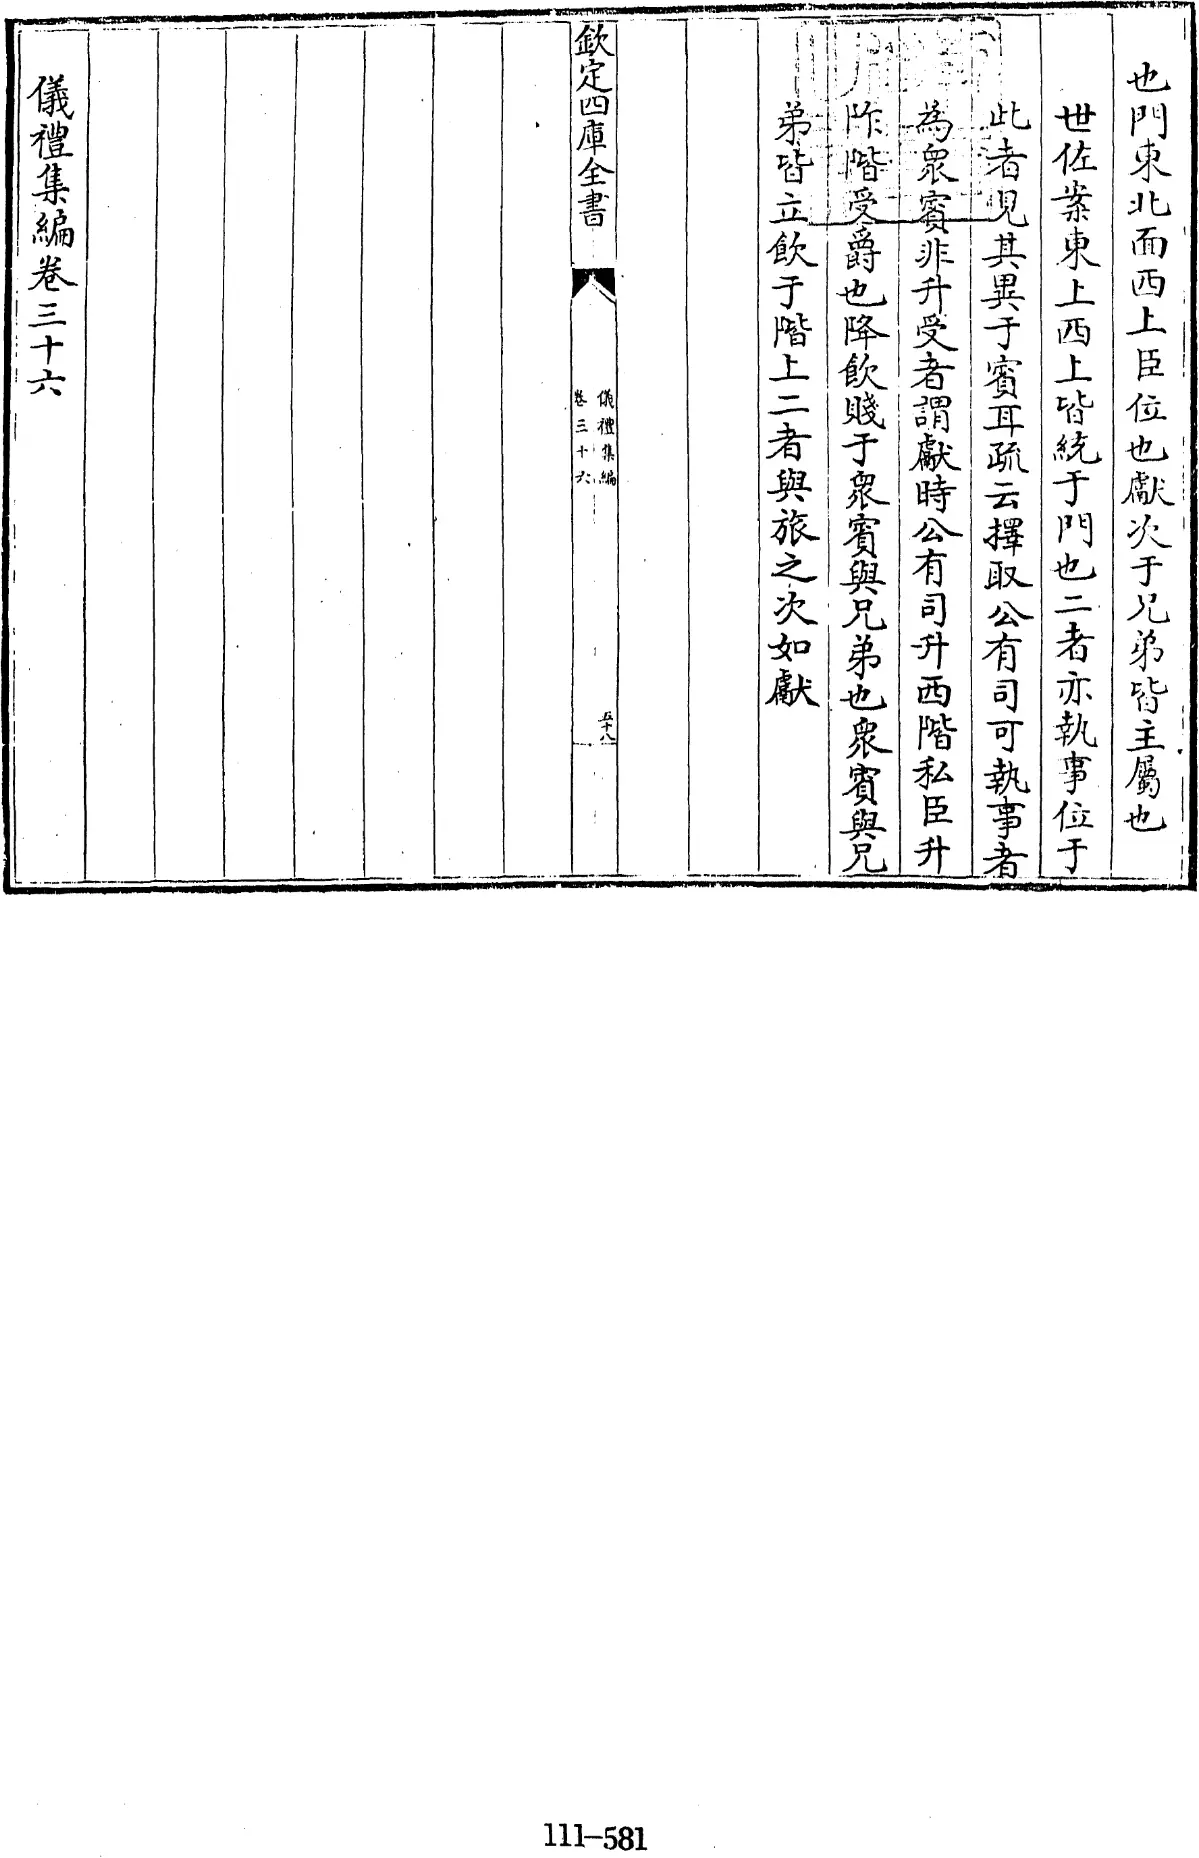 也門東北面西上臣位也獻次于兄弟皆主屬也
世佐案東上西上皆統于門也二者亦執事位于
此者見其異于賓耳疏云擇取公有司可執事者
為衆賓非升受者謂獻時公有司升西階私臣升
阼階受爵也降飲賤于衆賓與兄弟也衆賓與兄
弟皆立飲于階上二者與旅之次如獻
欽定四庫全書
儀禮集編
卷三十六
五十八
儀禮集編卷三十六
111-581